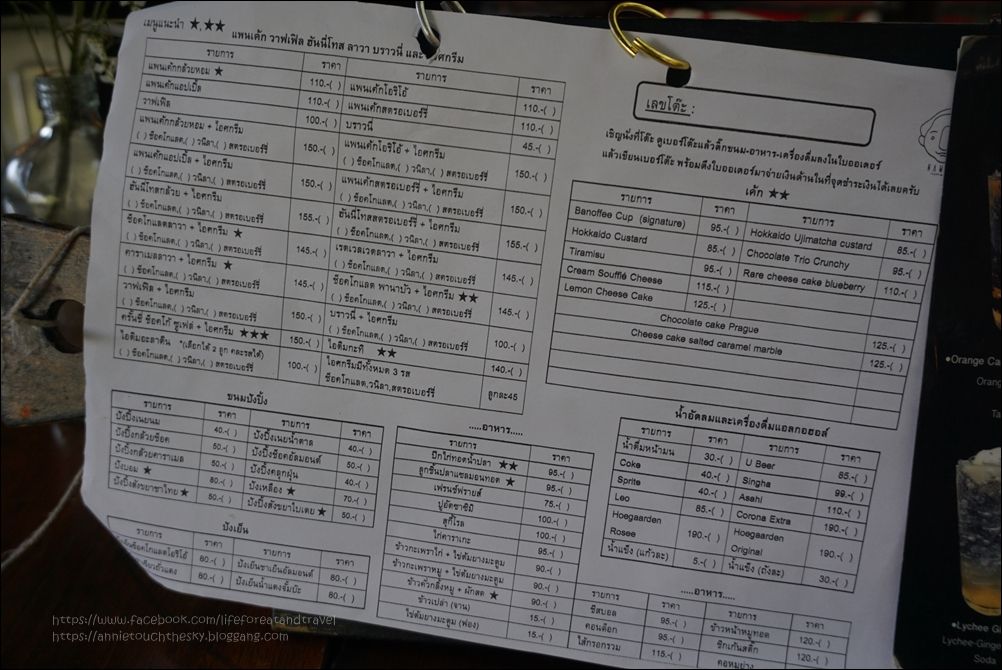 เมนูแนะนำ ★,★★
แพนเค้ก วาฟเฟิล ฮันนี่โทส ลาวา บราวนี่ และ ไอศกรีม
รายการ ราคา รายการ ราคา
แพนเค้กกล้วยหอม ★ 110.-( ) แพนเค้กโอริโอ้ 110.-( )
แพนเค้กแอปเปิ้ล 110.-( ) แพนเค้กสตรอเบอร์รี่ 110.-( )
วาฟเฟิล 100.-( ) บราวนี่ 45.-( )
แพนเค้กกล้วยหอม + ไอศกรีม 150.-( ) แพนเค้กโอริโอ้ + ไอศกรีม 150.-( )
( ) ช็อคโกแลต,( ) วนิลา,( ) สตรอเบอร์รี่ ( ) ช็อคโกแลต,( ) วนิลา,( ) สตรอเบอร์รี่
แพนเค้กแอปเปิ้ล + ไอศกรีม 150.-( ) แพนเค้กสตรอเบอร์รี่ + ไอศกรีม 150.-( )
( ) ช็อคโกแลต,( ) วนิลา,( ) สตรอเบอร์รี่ ( ) ช็อคโกแลต,( ) วนิลา,( ) สตรอเบอร์รี่
ฮันนี่โทสกล้วย + ไอศกรีม 155.-( ) ฮันนี่โทสสตรอเบอร์รี่ + ไอศกรีม 155.-( )
( ) ช็อคโกแลต,( ) วนิลา,( ) สตรอเบอร์รี่ ( ) ช็อคโกแลต,( ) วนิลา,( ) สตรอเบอร์รี่
ช็อคโกแลตลาวา + ไอศกรีม ★ 145.-( ) เรดเวลเวตลาวา + ไอศกรีม 145.-( )
( ) ช็อคโกแลต,( ) วนิลา,( ) สตรอเบอร์รี่ ( ) ช็อคโกแลต,( ) วนิลา,( ) สตรอเบอร์รี่
คาราเมลลาวา + ไอศกรีม ★ 145.-( ) ช็อคโกแลต พานาบัว + ไอศกรีม ★★ 145.-( )
( ) ช็อคโกแลต,( ) วนิลา,( ) สตรอเบอร์รี่ ( ) ช็อคโกแลต,( ) วนิลา,( ) สตรอเบอร์รี่
วาฟเฟิล + ไอศกรีม 150.-( ) บราวนี่ + ไอศกรีม 100.-( )
( ) ช็อคโกแลต,( ) วนิลา,( ) สตรอเบอร์รี่ ( ) ช็อคโกแลต,( ) วนิลา,( ) สตรอเบอร์รี่
ครั้นชี่ ช็อคโก้ ซูเฟล่ + ไอศกรีม ★★★ 150.-( ) ไอติมกะทิ ★★ 140.-( )
ไอติมอะลาดิน *(เลือกได้ 2 ลูก คละรสได้) 100.-( ) ไอศกรีมมีทั้งหมด 3 รส ลูกละ45
( ) ช็อคโกแลต,( ) วนิลา,( ) สตรอเบอร์รี่ ช็อคโกแลต,วนิลา,สตรอเบอร์รี่
เลขโต๊ะ :
เชิญนั่งที่โต๊ะ ดูเบอร์โต๊ะแล้วติ๊กขนม-อาหาร-เครื่องดื่มลงในใบออเดอร์
แล้วเขียนเบอร์โต๊ะ พร้อมดึงใบออเดอร์มาจ่ายเงินด้านในที่จุดชำระเงินได้เลยครับ
เค้ก ★★
รายการ ราคา รายการ ราคา
Banoffee Cup (signature) 95.-( ) Hokkaido Ujimatcha custard 85.-( )
Hokkaido Custard 85.-( ) Chocolate Trio Crunchy 95.-( )
Tiramisu 95.-( ) Rare cheese cake blueberry 110.-( )
Cream Soufflé Cheese 115.-( )
Lemon Cheese Cake 125.-( )
Chocolate cake Prague 125.-( )
Cheese cake salted caramel marble 125.-( )
ขนมปังปิ้ง
รายการ ราคา รายการ ราคา
ปังปิ้งเนยนม 40.-( ) ปังปิ้งเนยน้ำตาล 40.-( )
ปังปิ้งกล้วยช็อค 50.-( ) ปังปิ้งช็อคอัลมอนด์ 50.-( )
ปังปิ้งกล้วยคาราเมล 50.-( ) ปังปิ้งคลุกฝุ่น 50.-( )
ปังบอม ★ 80.-( ) ปังเหลือง ★ 70.-( )
ปังปิ้งสังขยาชาไทย ★ 50.-( ) ปังปิ้งสังขยาใบเตย ★ 50.-( )
ปังเย็น
รายการ ราคา รายการ ราคา
เย็นช็อคโกแลตโอริโอ้ 80.-( ) ปังเย็นชาเย็นอัลมอนด์ 80.-( )
80.-( ) ปังเย็นน้ำแดงจั๊มบ๊ะ 80.-( )
.....อาหาร.....
รายการ ราคา
ปีกไก่ทอดน้ำปลา ★★ 95.-( )
ลูกชิ้นปลาแซลมอนทอด ★ 95.-( )
เฟรนช์ฟรายส์ 75.-( )
ปูอัดซาชิมิ 100.-( )
สุกี้โรล 100.-( )
ไก่คาราเกะ 95.-( )
ข้าวกะเพราไก่ + ไข่ต้มยางมะตูม 90.-( )
ข้าวกะเพราหมู + ไข่ต้มยางมะตูม 90.-( )
ข้าวคั่วกลิ้งหมู + ผักสด ★ 90.-( )
ข้าวเปล่า (จาน) 15.-( )
ไข่ต้มยางมะตูม (ฟอง) 15.-( )
น้ำอัดลมและเครื่องดื่มแอลกอฮอล์
รายการ ราคา รายการ ราคา
น้ำดื่มหน้ามน 30.-( ) U Beer 85.-( )
Coke 40.-( ) Singha 99.-( )
Sprite 40.-( ) Asahi 110.-( )
Leo 85.-( ) Corona Extra 190.-( )
Hoegaarden Rosee 190.-( ) Hoegaarden Original 190.-( )
น้ำแข็ง (แก้วละ) 5.-( ) น้ำแข็ง (ถังละ) 30.-( )
.....อาหาร.....
รายการ ราคา รายการ ราคา
ชีสบอล 95.-( ) ข้าวหน้าหมูทอด 120.-( )
คอนด็อก 95.-( ) ชิกเก้นสติ๊ก 120.-( )
ไส้กรอกรวม 115.-( ) คอหมูย่าง
•Orange Ca
Orang
Ta
•Lychee G
Lychee-Ging
Soda
https://www.facebook.com/lifeforeatandtravel
https://annietouchthesky.bloggang.com